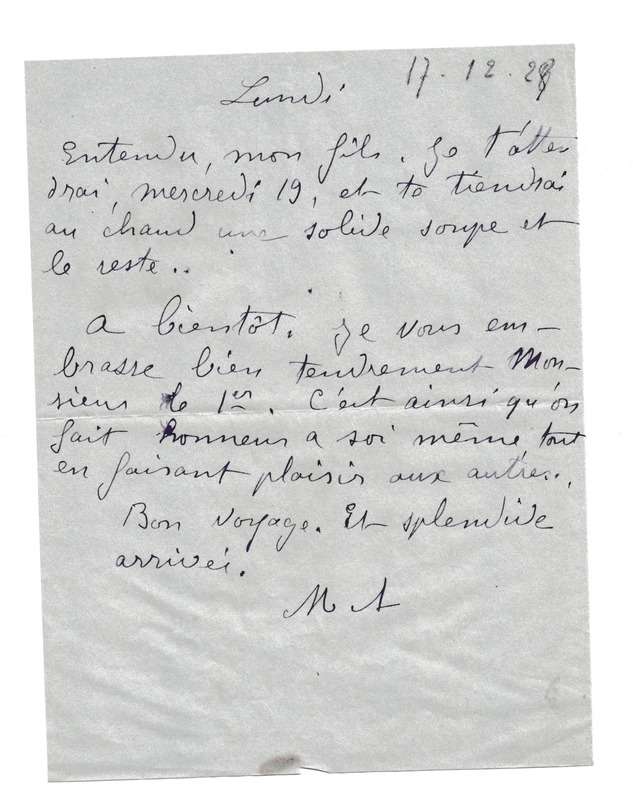 17.12.28
Lundi
Entendu, mon fils. Je t'atten
drai, mercredi 19, et te tiendrai
au chaud une solide soupe et
le reste..
A bientôt. Je vous em-
brasse bien tendrement Mon-
sieur le 1er. C'est ainsi qu'on
fait honneur a soi même tout
en faisant plaisir aux autres..
Bon voyage. Et splendide
arrivée.
M A